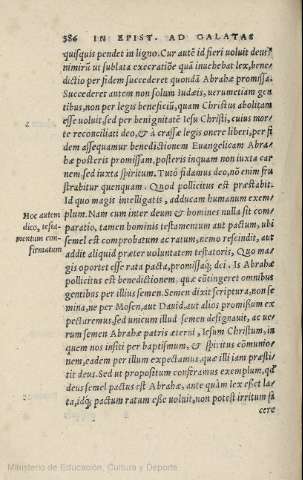 386 IN EPIST. AD GALATAS
quisquis pendet in ligno. Cur autē id fieri uoluit deus?
nimirū ut sublata execratiōe quā inuehebat lex, bene⸗
dictio per fidem succederet quondā Abrahæ promissa.
Succederet autem non solum Iudæis, uerumetiam gen
tibus, non per legis beneficiū, quam Christus abolitam
esse uoluit, sed per benignitatē Iesu Christi, cuius mor⸗
te reconciliati deo, & à crassæ legis onere liberi, per fi
dem assequamur benedictionem Euangelicam Abra⸗
hæ posteris promissam, posteris inquam non iuxta car
nem sed iuxta spiritum. Tutò fidamus deo, nō enim fru
strabitur quenquam. Quod pollicitus est præstabit.
Id quo magis intelligatis, adducam humanum exem⸗
Hoc autem
dico, testa⸗
mentum con⸗
firmatum
plum. Nam cum inter deum & homines nulla sit com⸗
paratio, tamen hominis testamentum aut pactum, ubi
semel est comprobatum ac ratum, nemo rescindit, aut
addit aliquid præter uoluntatem testatoris, Quo ma⸗
gis oportet esse rata pacta, promissaq; dei. Is Abrahæ
pollicitus est benedictionem, quæ cōtingeret omnibus
gentibus per illius semen. Semen dixit scriptura, non se
mina, ne per Mosen, aut Dauid, aut alios promissum ex
pectaremus, sed unicum illud semen designauit, ac ue⸗
rum semen Abrahæ patris æterni, Iesum Christum, in
quem nos insiti per baptismum, & spiritus cōmunio⸗
nem, eadem per illum expectamus, quæ illi iam præsti⸗
tit deus. Sed ut propositum conferamus exemplum, qđ
deus semel pactus est Abrahæ, ante quàm lex esset la⸗
ta, idq; pactum ratum esse uoluit, non potest irritum fa
cere
Ministerio de Educación, Cultura y Deporte